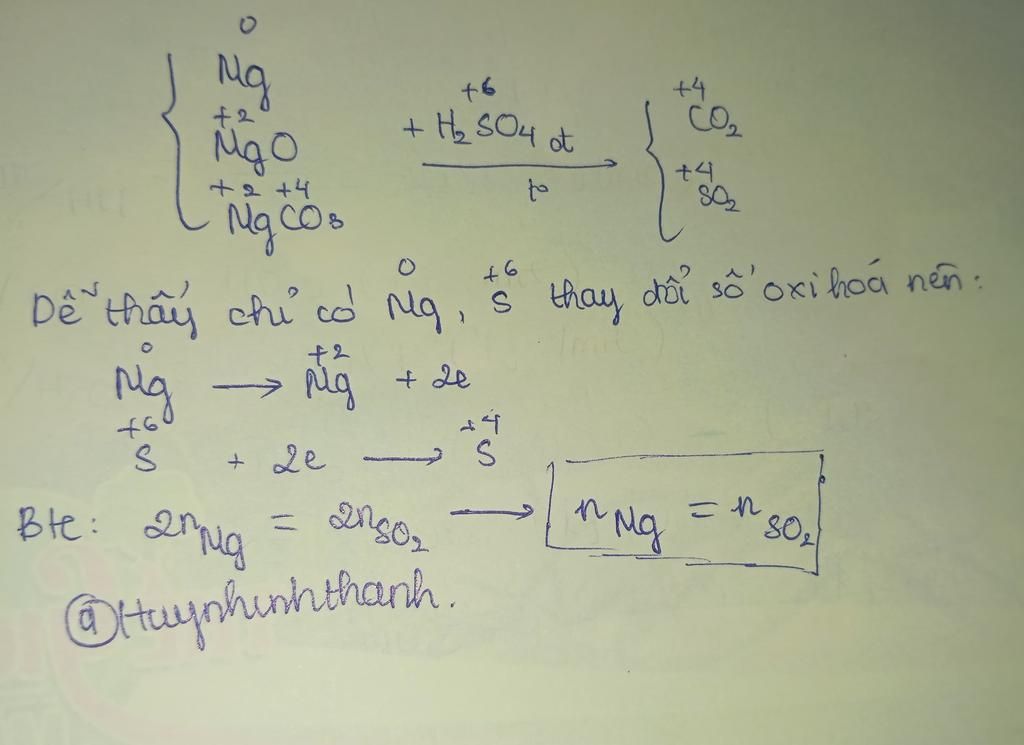 0
Mg
+2
MgO
+2 +4
MgCO3
+6
+ H2SO4 đt
to
+4
CO2
+4
SO2
0 +6
Dễ thấy chỉ có Mg, S thay đổi số oxi hoá nên:
0 +2
Mg → Mg + 2e
+6 +4
S + 2e → S
Bte: 2nMg = 2nSO2 → nMg = nSO2
@Huynhinhthanh.